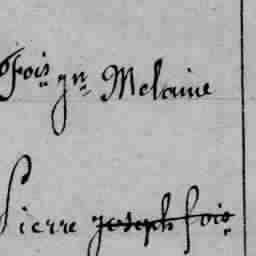 Fois gn Melaine
Pierre Joseph fois